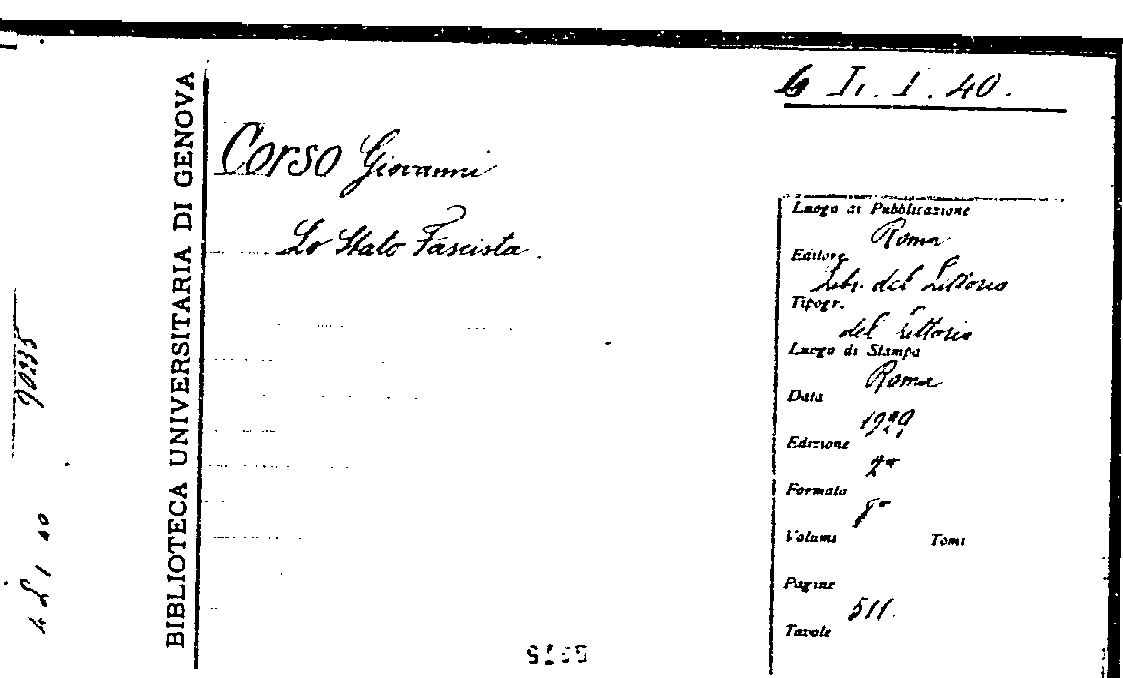 I. 40.
BIBLIOTECA UNIVERSITARIA DI GENOVA
Corso Giovanni
Lo Stato Fascista.
Luogo di Pubblicazione
Roma
Editore
Libr. del Littorio
Tipogr.
del Littorio
Luogo di Stampa
Roma
Data
1929
Edizione
2ª
Formato
8°
Volumi Tomi
Pagine
511.
Tavole
90335